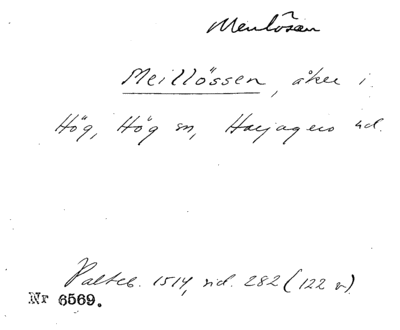 Menlösen
Meillössen, åker i
Hög, Hög sn, Harjagers hd.
Palteb. 1514, sid. 282 (122 v)
Nr 6569.